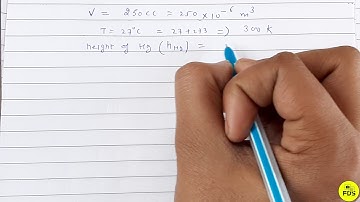 V = 250cc = 250 × 10⁻⁶ m³
T = 27°C = 27 + 273 => 300 K
height of Hg (hHg) =
FDS